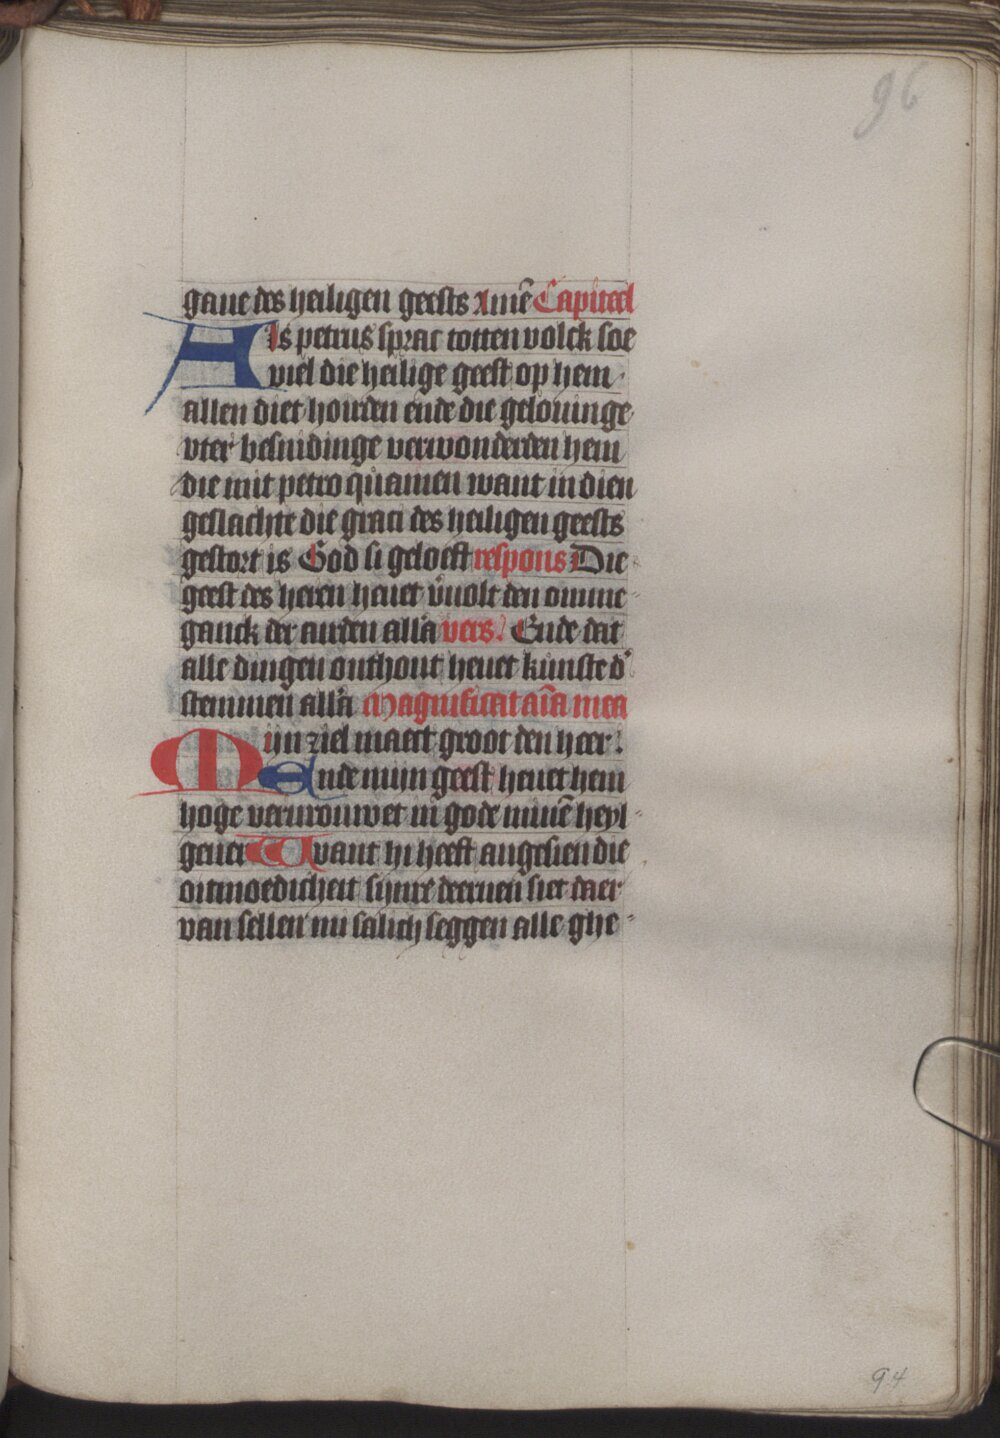 96
gaue des heiligen geests Amē Capitael
Als petrus sprac totten volck soe
viel die heilige geest op hem
allen diet horden ende die gelouinge
vter besnidinge verwonderden hem
die mit petro quamen want in dien
geslachte die graci des heiligen geests
gestort is God si geloeft respons Die
geest des heren heuet v̄uolt den omme
ganck der aerden all'a vers. Ende dat
alle dingen onthout heuet kunste d'
stemmen all'a Magnificat aīa mea
Mijn ziel maect groot den heer.
Ende mijn geest heuet hem
hoge vervrouwet in gode minē heyl
geuer Want hi heeft angesien die
oitmoedicheit sijnre deernen siet daer
van sellen mi salich seggen alle ghe
94